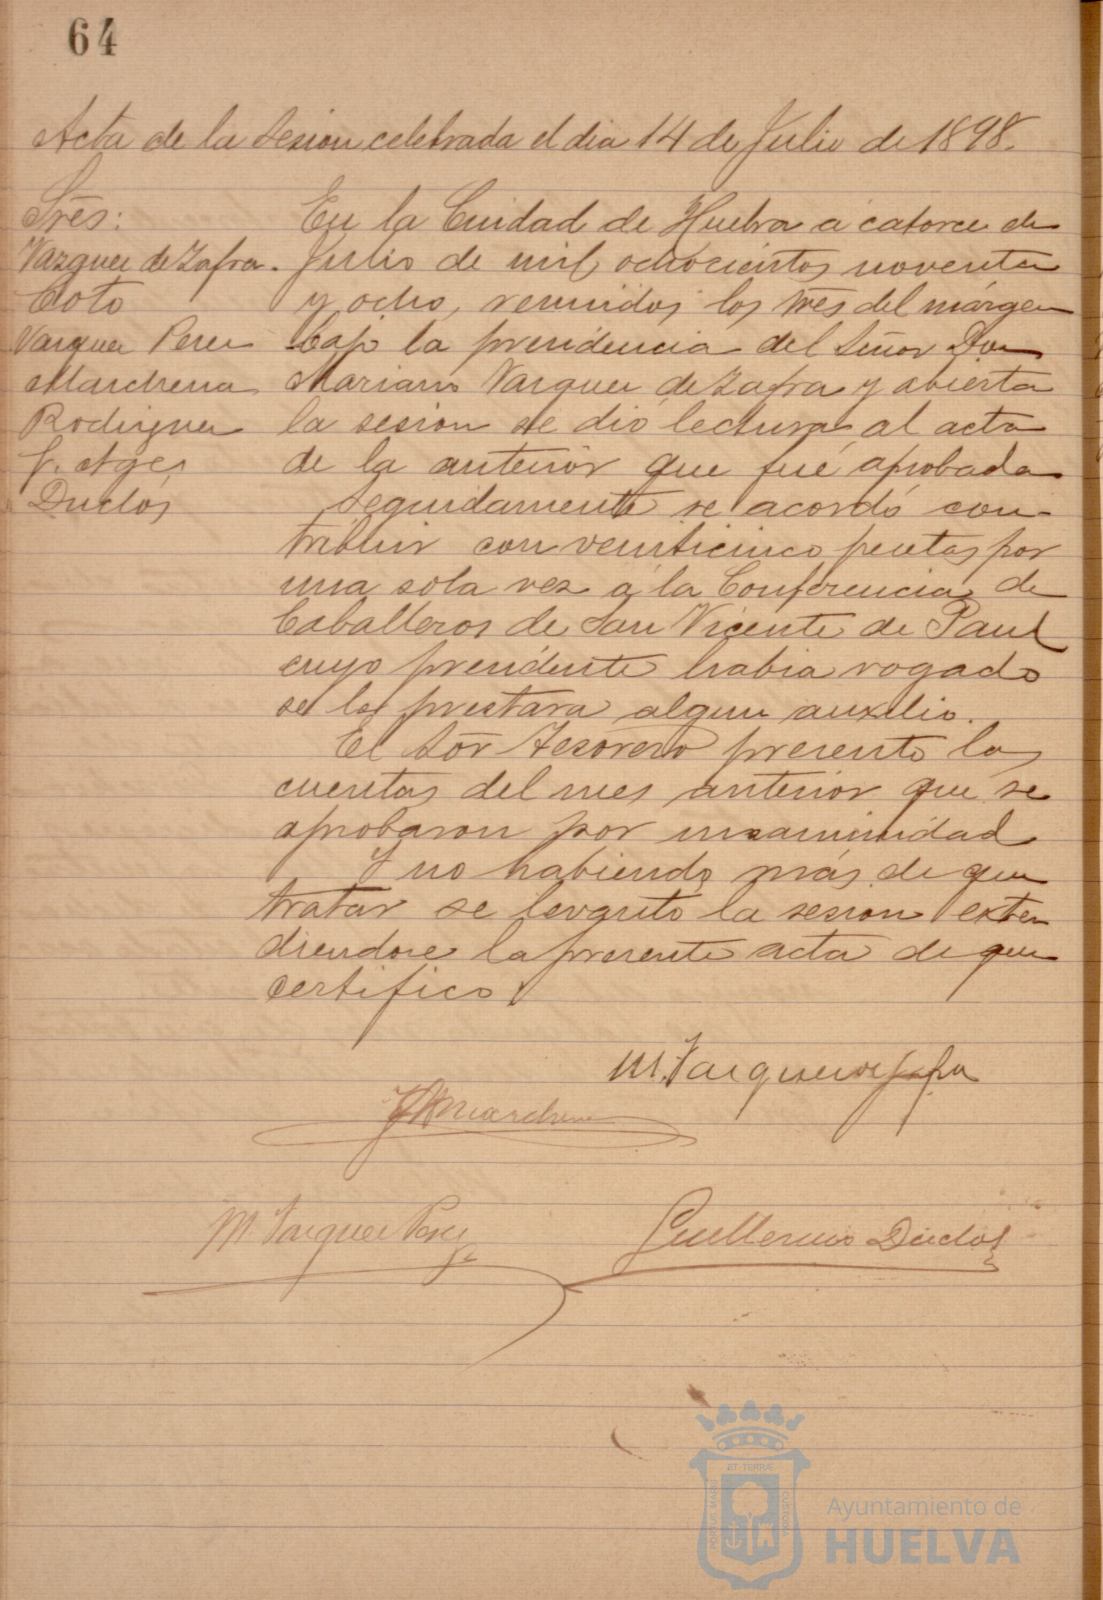 64
Acta de la sesion celebrada el dia 14 de Julio de 1898.
Srēs:
Vazquez de Zafra.
Coto
Vazquez Perez
Marchena
Rodriguez
J. Ages
Duclós
En la Ciudad de Huelva a catorce de
Julio de mil ochocientos noventa
y ocho, reunidos los srēs del márgen
bajo la presidencia del Señor Don
Mariano Vazquez de Zafra y abierta
la sesion se dió lectura al acta
de la anterior que fué aprobada
Seguidamente se acordó con-
tribuir con veinticinco pesetas por
una sola vez á la Conferencia de
Caballeros de San Vicente de Paul
cuyo presidente habia rogado
se le prestara algun auxilio.
El Sōr Tesorero presentó las
cuentas del mes anterior que se
aprobaron por unanimidad
Y no habiendo más de que
tratar se levantó la sesion exten
diendose la presente acta de que
certifico.
M. Vazquez de Zafra
Marchena
M. Vazquez Perez
Guillermo Duclos
ET TERRÆ
PORTUS MARIS
CUSTODIA
Ayuntamiento de
HUELVA